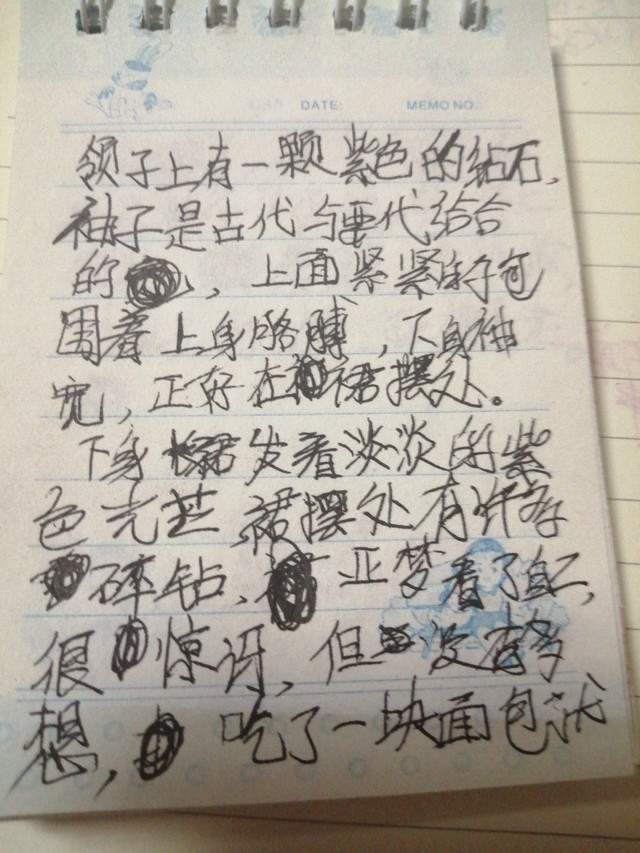 DATE: MEMO NO.
领子上有一颗紫色的钻石,
袖子是古代与现代结合
的,上面紧紧的包
围着上身胳膊,下身袖
宽,正好在裙摆处。
下身裙发着淡淡的紫
色光芒,裙摆处有许多
碎钻、亚梦看了自己,
很惊讶,但没有多
想,吃了一块面包就